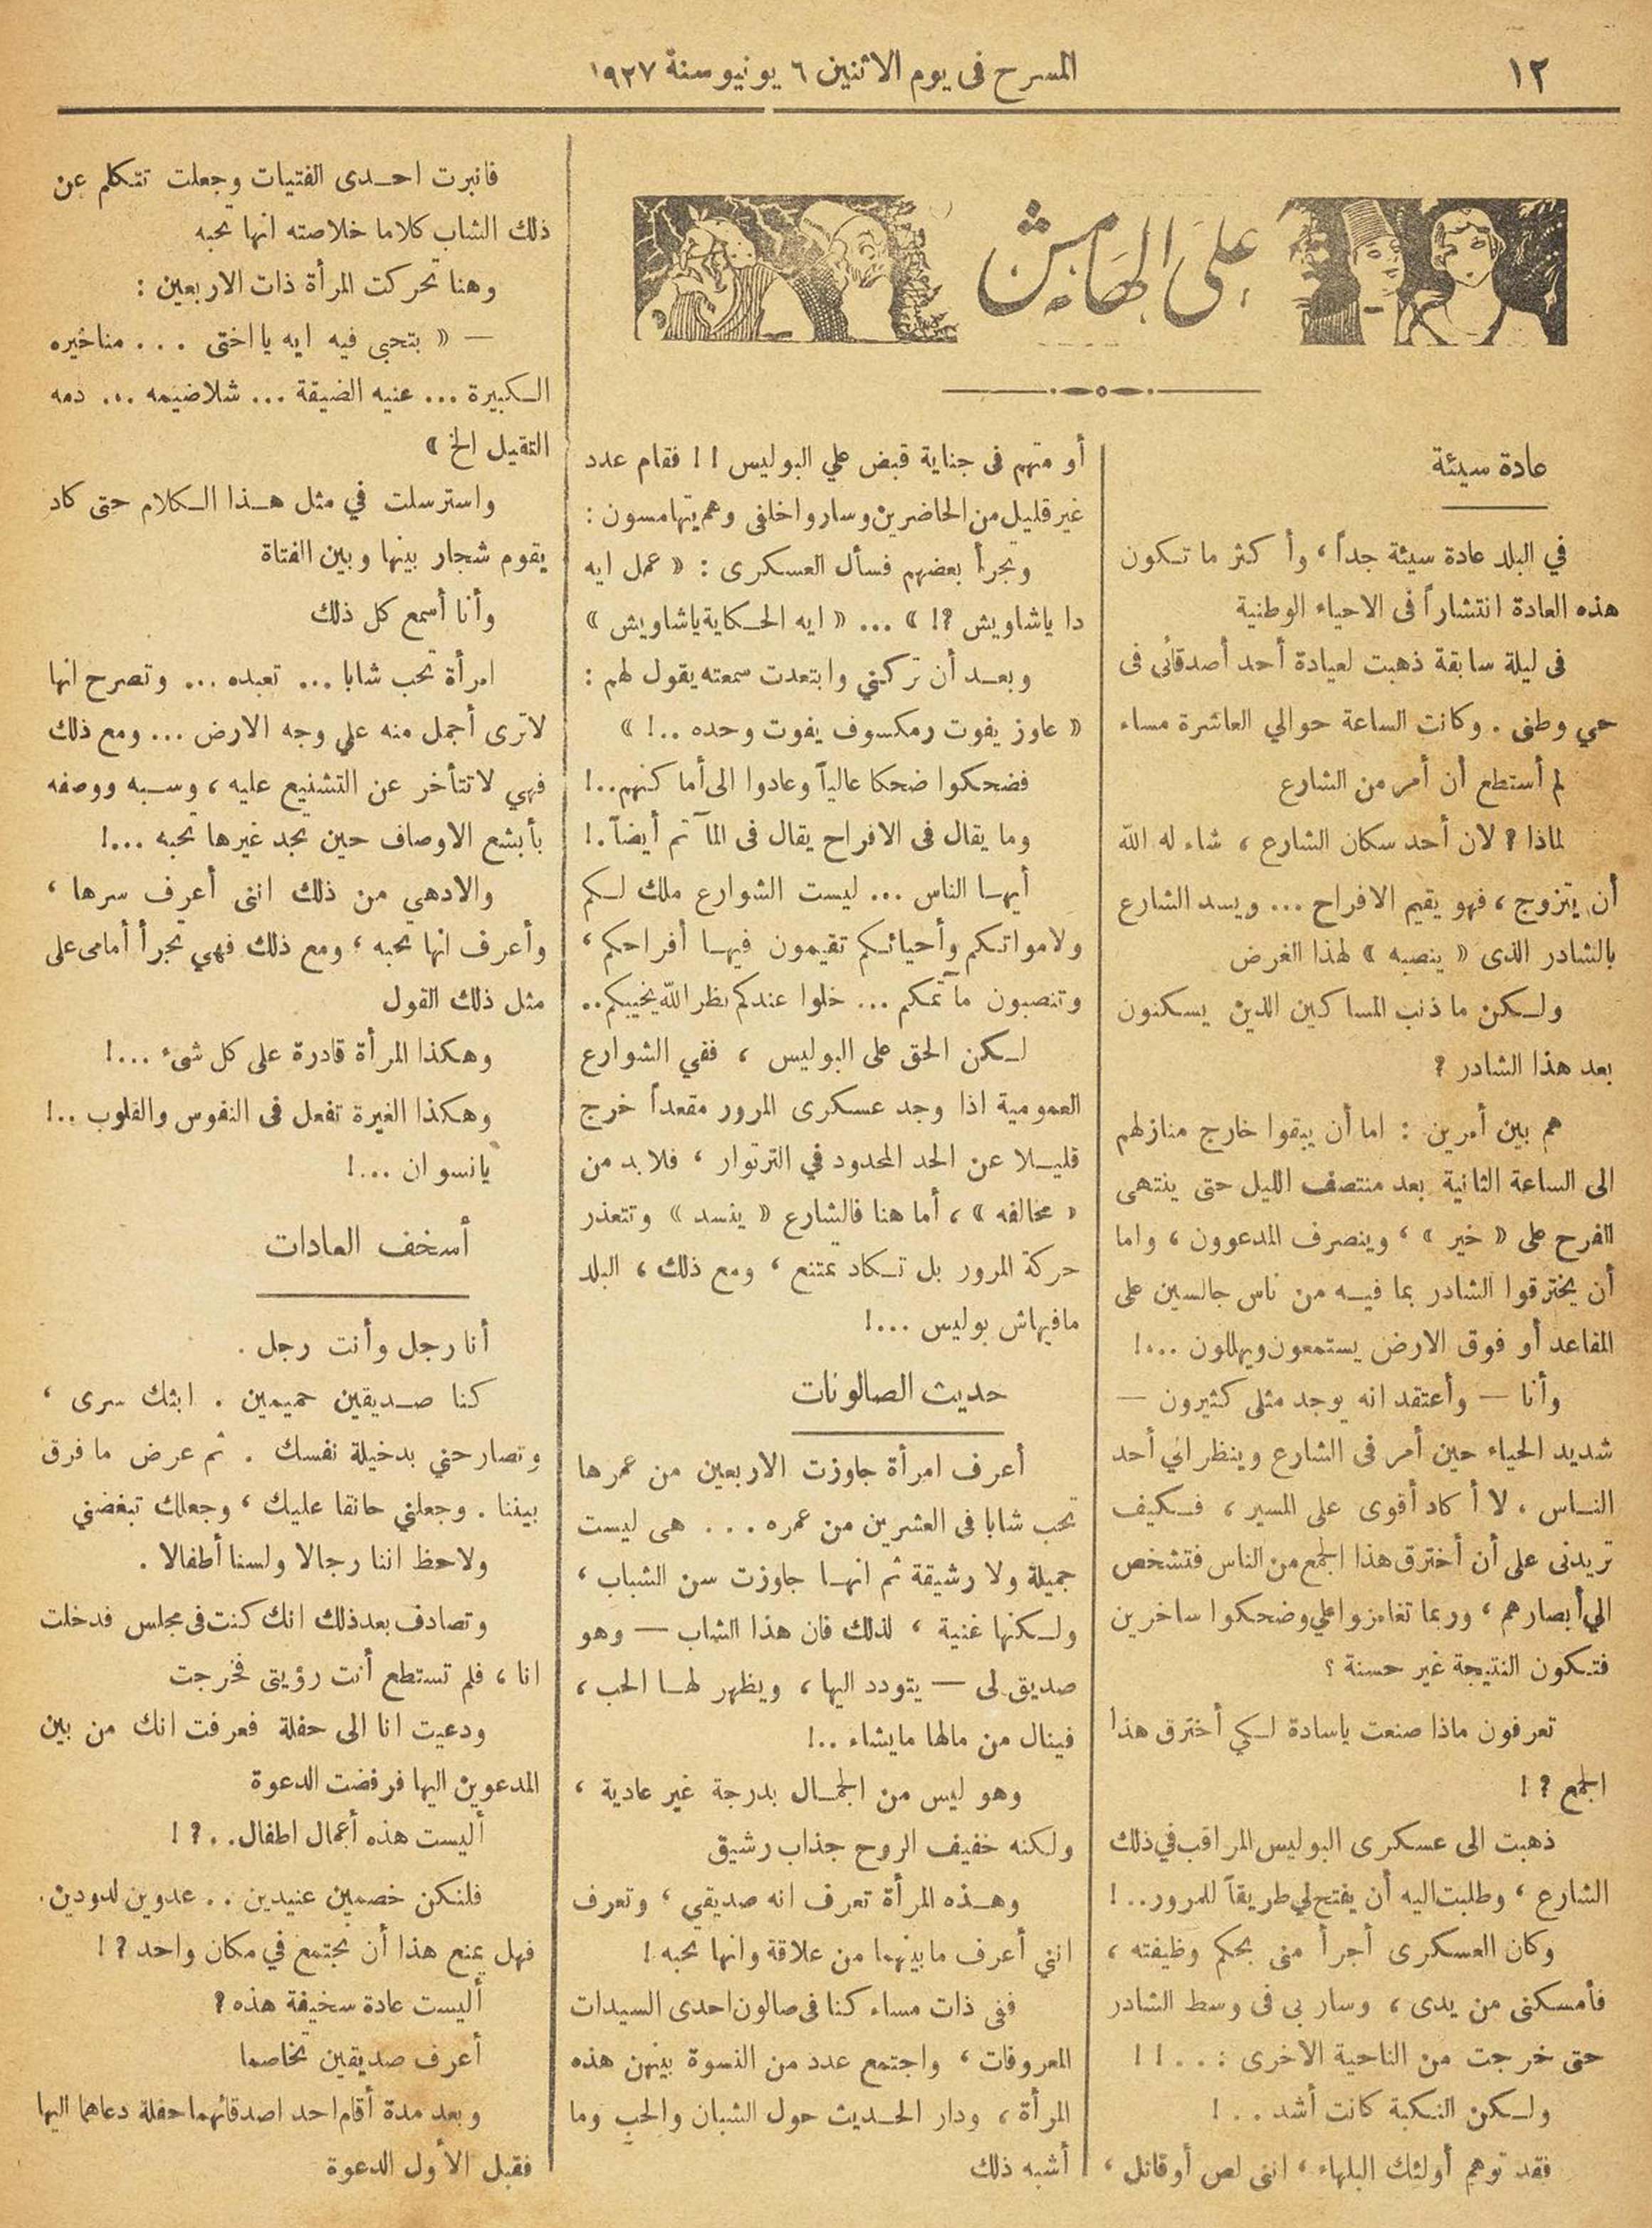 ١٢
المسرح فى يوم الاثنين ٦ يونيو سنة ١٩٢٧
على الهامش
عادة سيئة
في البلد عادة سيئة جداً ، وأكثر ما تكون
هذه العادة انتشاراً فى الاحياء الوطنية
فى ليلة سابقة ذهبت لعيادة أحد أصدقائى فى
حي وطنى . وكانت الساعة حوالي العاشرة مساء
لم أستطع أن أمر من الشارع
لماذا ؟ لان أحد سكان الشارع ، شاء له الله
أن يتزوج ، فهو يقيم الافراح ... ويسد الشارع
بالشادر الذى « ينصبه » لهذا الغرض
ولكن ما ذنب المساكين الذين يسكنون
بعد هذا الشادر ؟
هم بين أمرين : اما أن يبقوا خارج منازلهم
الى الساعة الثانية بعد منتصف الليل حتى ينتهى
الفرح على « خير » ، وينصرف المدعوون ، واما
أن يخترقوا الشادر بما فيه من ناس جالسين على
المقاعد أو فوق الارض يستمعون ويهللون ...!
وأنا — وأعتقد انه يوجد مثلى كثيرون —
شديد الحياء حين أمر فى الشارع وينظر الي أحد
الناس ، لا أكاد أقوى على المسير ، فكيف
تريدنى على أن أخترق هذا الجمع من الناس فتشخص
الي أبصارهم ، وربما تغامزوا علي وضحكوا ساخرين
فتكون النتيجة غير حسنة ؟
تعرفون ماذا صنعت ياسادة لكي أخترق هذا
الجمع ؟ !
ذهبت الى عسكرى البوليس المراقب في ذلك
الشارع ، وطلبت اليه أن يفتح لي طريقاً للمرور.. !
وكان العسكرى أجرأ منى بحكم وظيفته ،
فأمسكنى من يدى ، وسار بى فى وسط الشادر
حتى خرجت من الناحية الاخرى : . . ! !
ولكن النكبة كانت أشد . . !
فقد توهم أولئك البلهاء ، اننى لص أو قاتل ،
أو متهم فى جناية قبض علي البوليس ! ! فقام عدد
غير قليل من الحاضرين وساروا خلفى وهم يتهامسون :
وتجرأ بعضهم فسأل العسكرى : « عمل ايه
دا ياشاويش ؟! » ... « ايه الحكاية ياشاويش »
وبعد أن تركني وابتعدت سمعته يقول لهم :
« عاوز يفوت ومكسوف يفوت وحده ..! »
فضحكوا ضحكا عالياً وعادوا الى أماكنهم..!
وما يقال فى الافراح يقال فى المآتم أيضاً .!
أيها الناس ... ليست الشوارع ملك لكم
ولامواتكم وأحيائكم تقيمون فيها أفراحكم ،
وتنصبون مآتمكم ... خلوا عندكم نظر الله يخيبكم..
لكن الحق على البوليس ، ففي الشوارع
العمومية اذا وجد عسكرى المرور مقعداً خرج
قليلا عن الحد المحدود في الترتوار ، فلابد من
« مخالفه » ، أما هنا فالشارع « ينسد » وتتعذر
حركة المرور بل تكاد تمتنع ، ومع ذلك ، البلد
مافيهاش بوليس ...!
حديث الصالونات
أعرف امرأة جاوزت الاربعين من عمرها
تحب شابا فى العشرين من عمره . . . هى ليست
جميلة ولا رشيقة ثم انها جاوزت سن الشباب ،
ولكنها غنية ، لذلك فان هذا الشاب — وهو
صديق لى — يتودد اليها ، ويظهر لها الحب ،
فينال من مالها مايشاء ..!
وهو ليس من الجمال بدرجة غير عادية ،
ولكنه خفيف الروح جذاب رشيق
وهذه المرأة تعرف انه صديقي ، وتعرف
انني أعرف ما بينهما من علاقة وانها تحبه !
ففى ذات مساء كنا فى صالون احدى السيدات
المعروفات ، واجتمع عدد من النسوة بينهن هذه
المرأة ، ودار الحديث حول الشبان والحب وما
أشبه ذلك
فانبرت احدى الفتيات وجعلت تتكلم عن
ذلك الشاب كلاما خلاصته انها تحبه
وهنا تحركت المرأة ذات الاربعين :
— « بتحبى فيه ايه يا اختى . . . مناخيره
الكبيرة ... عنيه الضيقة ... شلاضيمه ... دمه
التقيل الخ »
واسترسلت في مثل هذا الكلام حتى كاد
يقوم شجار بينها وبين الفتاة
وأنا أسمع كل ذلك
امرأة تحب شابا ... تعبده ... وتصرح انها
لاترى أجمل منه علي وجه الارض ... ومع ذلك
فهي لاتتأخر عن التشنيع عليه ، وسبه ووصفه
بأبشع الاوصاف حين تجد غيرها تحبه ...!
والادهى من ذلك اننى أعرف سرها ،
وأعرف انها تحبه ، ومع ذلك فهي تجرأ أمامى على
مثل ذلك القول
وهكذا المرأة قادرة على كل شىء ...!
وهكذا الغيرة تفعل فى النفوس والقلوب ..!
يانسوان ...!
أسخف العادات
أنا رجل وأنت رجل .
كنا صديقين حميمين . ابثك سرى ،
وتصارحني بدخيلة نفسك . ثم عرض ما فرق
بيننا . وجعلني حانقا عليك ، وجعلك تبغضني
ولاحظ اننا رجالا ولسنا أطفالا .
وتصادف بعد ذلك انك كنت فى مجلس فدخلت
انا ، فلم تستطع أنت رؤيتى فخرجت
ودعيت انا الى حفلة فعرفت انك من بين
المدعوين اليها فرفضت الدعوة
أليست هذه أعمال اطفال. . ؟ !
فلنكن خصمين عنيدين . . عدوين لدودين .
فهل يمنع هذا أن نجتمع في مكان واحد ؟ !
أليست عادة سخيفة هذه ؟
أعرف صديقين تخاصما
وبعد مدة أقام احد اصدقائهما حفلة دعاهما اليها
فقبل الأول الدعوة